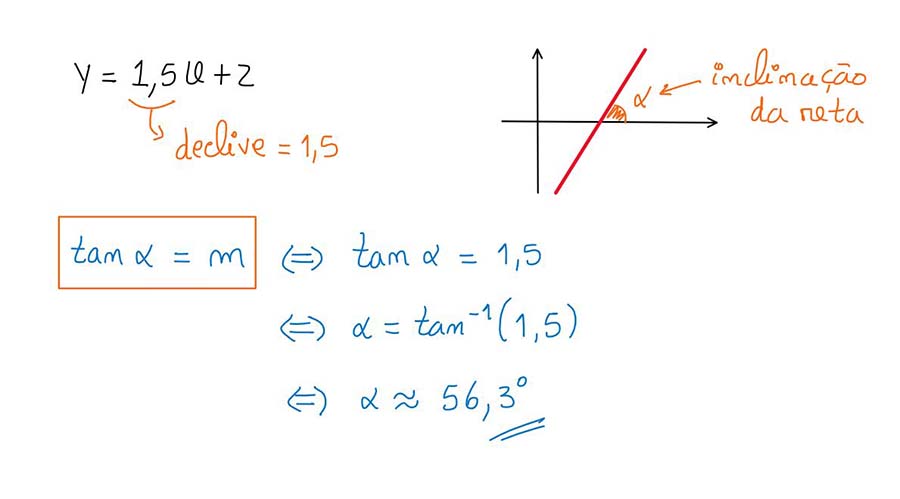 y = 1,5x + 2
declive = 1,5
α
inclinação
da reta
tan α = m ⇔ tan α = 1,5
⇔ α = tan⁻¹(1,5)
⇔ α ≈ 56,3°